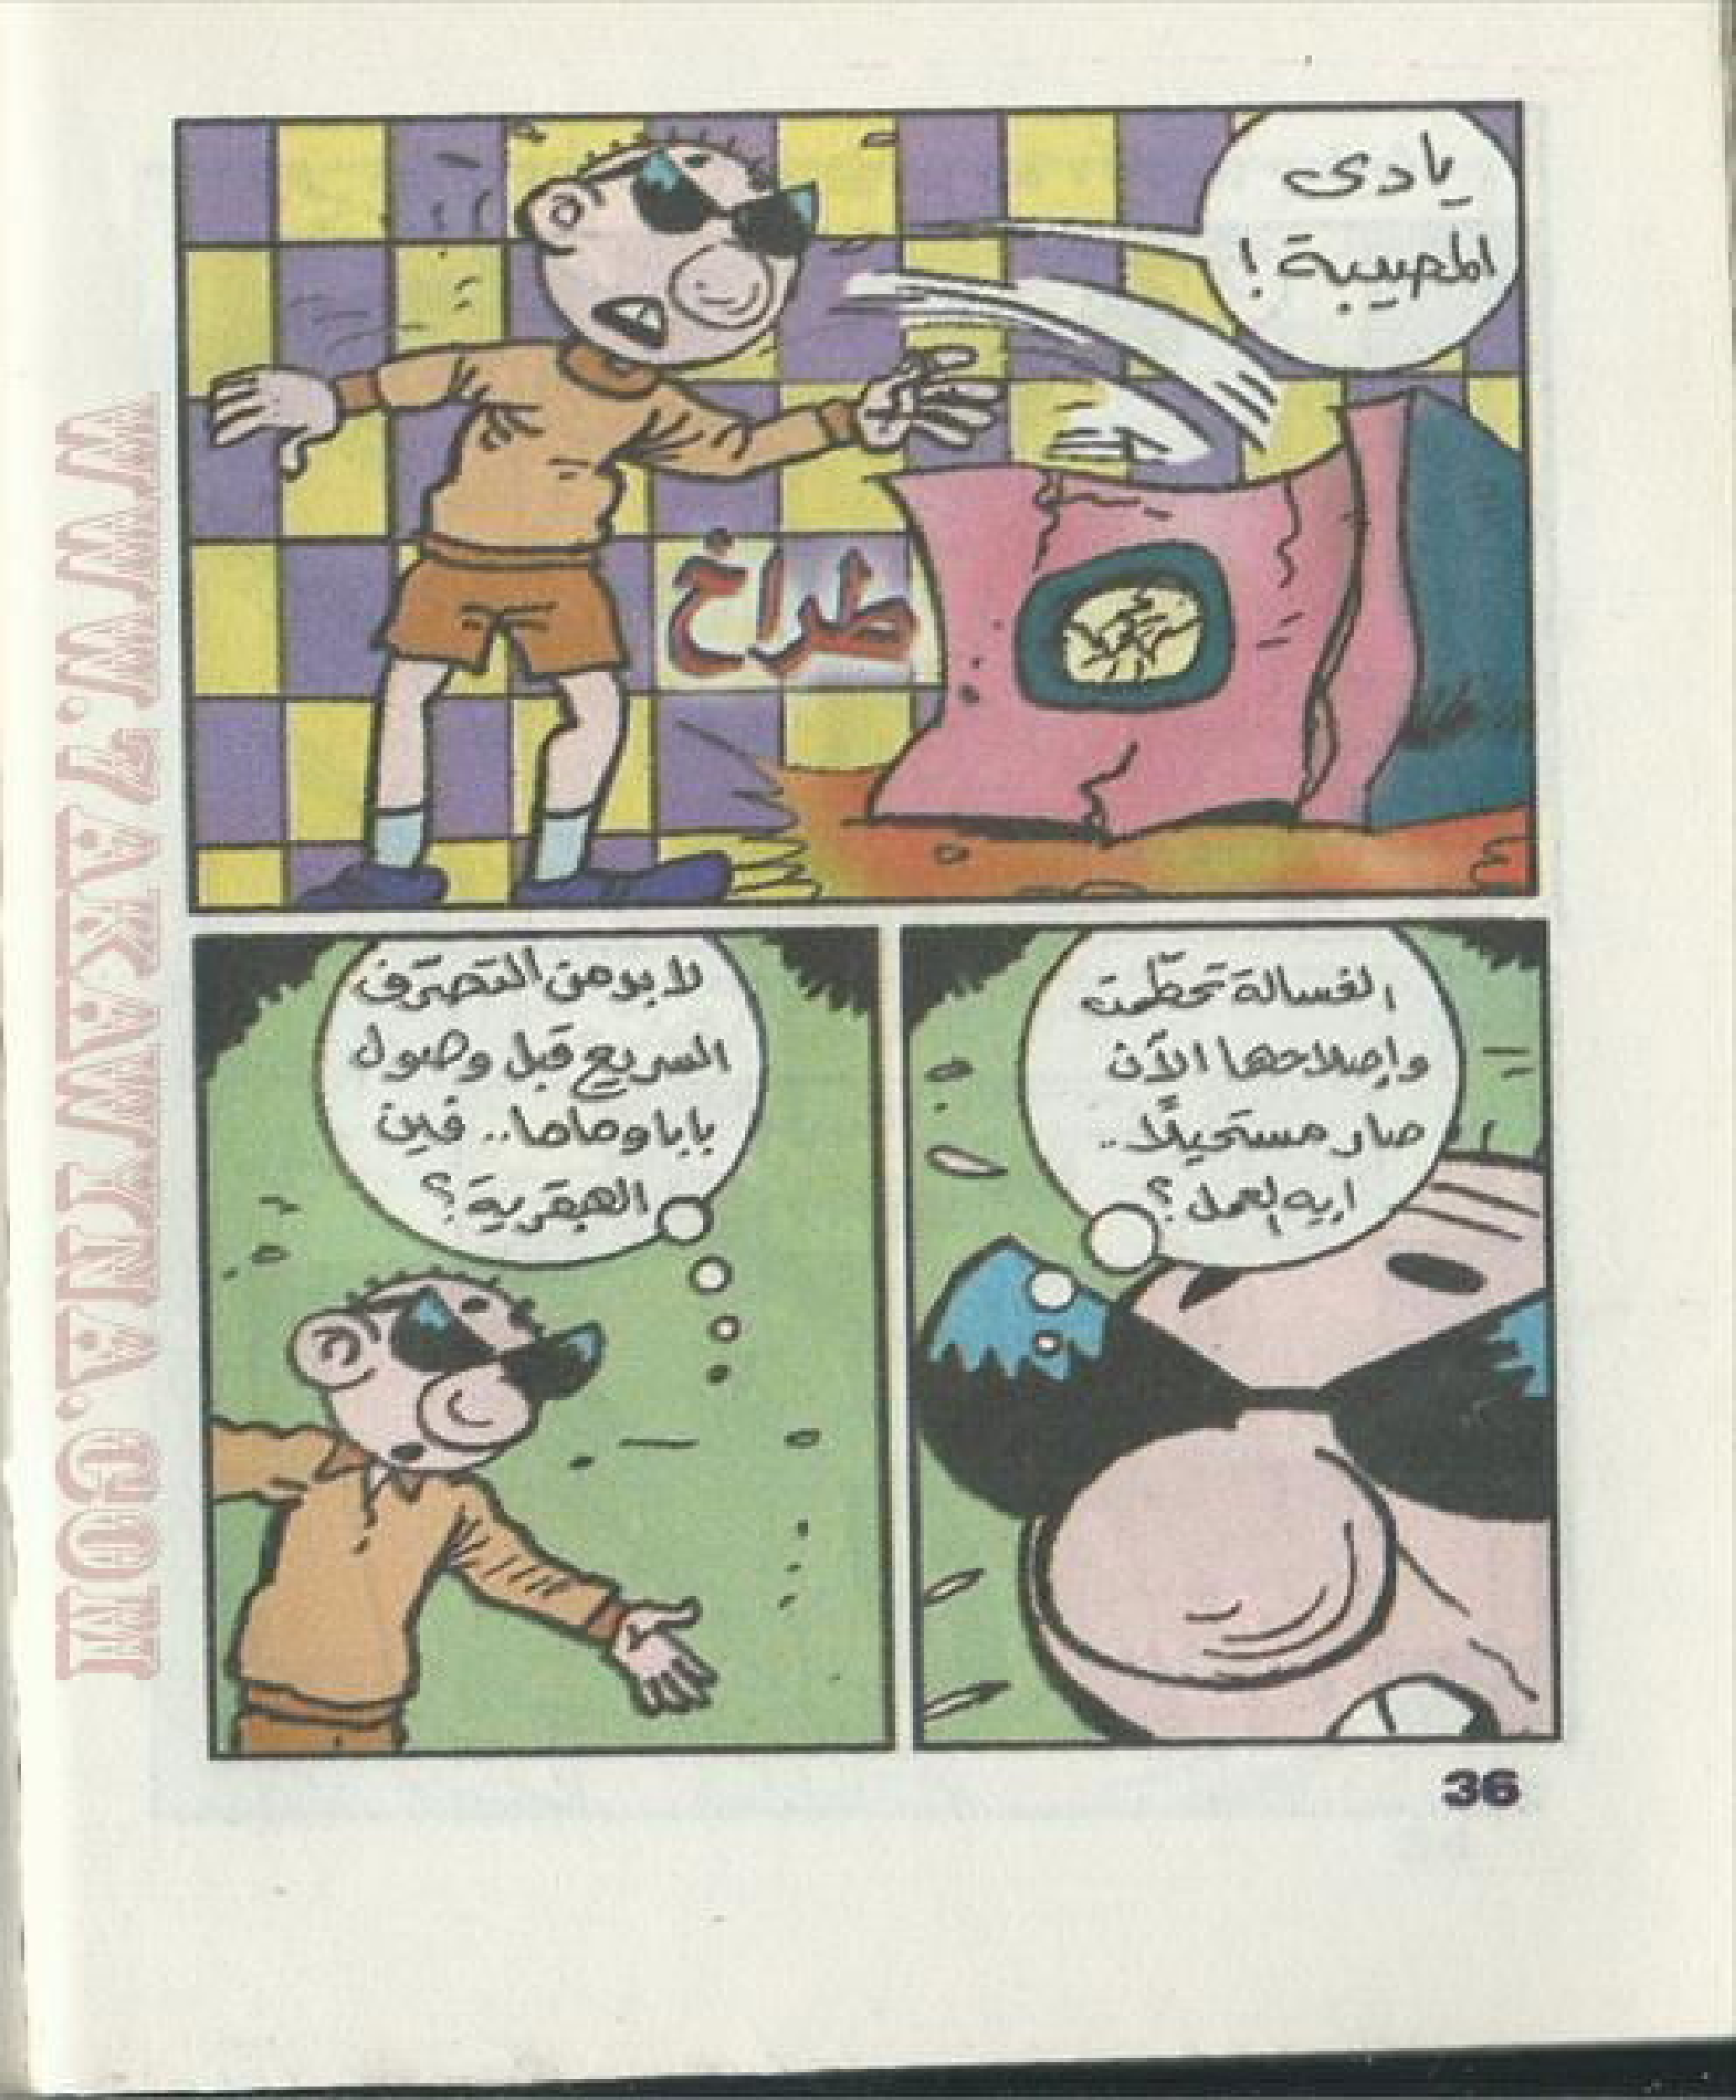 يادى
المصيبة !
طراخ
الغسالة تحطّمت
وإصلاحها الآن
صار مستحيلًا..
ايه العمل؟
لابد من التصرّف
السريع قبل وصول
بابا وماما.. فين
العبقرية؟
36
WWW.7AKAWITNA.COM